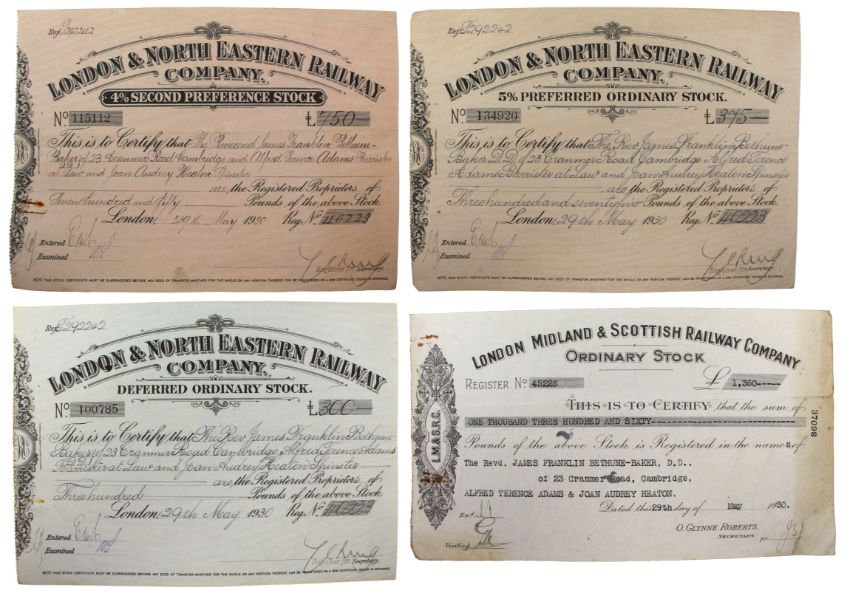 Ref.
LONDON & NORTH EASTERN RAILWAY
COMPANY.
4% SECOND PREFERENCE STOCK
No 115112 £ 750
This is to Certify that The Reverend James Franklin Bethune-
Baker of 23 Cranmer Road Cambridge and Alfred Terence Adams Barrister
at Law and Joan Audrey Heaton Spinster
are, the Registered Proprietors of
Seven hundred and fifty Pounds of the above Stock
London: 29th May 1930 Reg. No 40223
Entered
Examined
Registrar for Secretary.
NOTE THIS STOCK CERTIFICATE MUST BE SURRENDERED BEFORE ANY DEED OF TRANSFER WHETHER FOR THE WHOLE OR ANY PORTION THEREOF CAN BE REGISTERED OR A NEW CERTIFICATE ISSUED IN EXCHANGE.
Ref. F292242
LONDON & NORTH EASTERN RAILWAY
COMPANY.
5% PREFERRED ORDINARY STOCK.
No 134920 £ 375
This is to Certify that The Rev. James Franklin Bethune-
Baker D.D. of 23 Cranmer Road Cambridge Alfred Terence
Adams Barrister at Law and Joan Audrey Heaton Spinster
are the Registered Proprietors of
Three hundred and seventy five Pounds of the above Stock
London: 29th May 1930 Reg. No 40223
Entered
Examined
Registrar for Secretary.
NOTE THIS STOCK CERTIFICATE MUST BE SURRENDERED BEFORE ANY DEED OF TRANSFER WHETHER FOR THE WHOLE OR ANY PORTION THEREOF CAN BE REGISTERED OR A NEW CERTIFICATE ISSUED IN EXCHANGE.
Ref. F292242
LONDON & NORTH EASTERN RAILWAY
COMPANY.
DEFERRED ORDINARY STOCK.
No 100785 £ 300
This is to Certify that The Rev. James Franklin Bethune-
Baker of 23 Cranmer Road Cambridge Alfred Terence Adams
Barrister at Law and Joan Audrey Heaton Spinster
are, the Registered Proprietors of
Three hundred Pounds of the above Stock
London: 29th May 1930 Reg. No
Entered
Examined
Registrar for Secretary.
NOTE THIS STOCK CERTIFICATE MUST BE SURRENDERED BEFORE ANY DEED OF TRANSFER WHETHER FOR THE WHOLE OR ANY PORTION THEREOF CAN BE REGISTERED OR A NEW CERTIFICATE ISSUED IN EXCHANGE.
LONDON MIDLAND & SCOTTISH RAILWAY COMPANY
ORDINARY STOCK
REGISTER No 45226 £ 1,360-----
THIS IS TO CERTIFY that the sum of
ONE THOUSAND THREE HUNDRED AND SIXTY
Pounds of the above Stock is Registered in the name s of
The Revd. JAMES FRANKLIN BETHUNE-BAKER, D.D.,
of 23 Cranmer Road, Cambridge,
ALFRED TERENCE ADAMS & JOAN AUDREY HEATON.
Dated this 29th day of May 1930.
O. GLYNNE ROBERTS.
SECRETARY.
Verified
L.M.&S.R.C.
37098